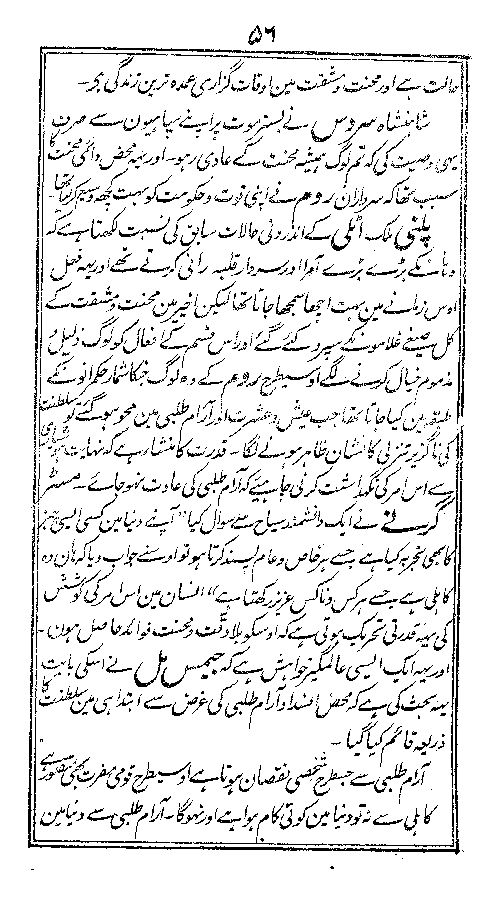 ۵۶
حالت ہے اور محنت و مشقت مین اوقات گزاری عمدہ ترین زندگی ہے۔
شاہنشاہ سروس نے بستر موت پر اپنے سپاہیون سے صرف
یہی وصیت کی کہ تم لوگ ہمیشہ محنت کے عادی رہو۔ اور یہہ محض دائمی محنت کا
سبب تھا کہ سرداران روم نے اپنی قوت و حکومت کو بہت کچھ وسیع کر لیا تھا۔
پلنی ملک اٹلی کے اندرونی حالات سابق کی نسبت لکھتا ہے کہ
وہانکے بڑے بڑے امرا اور سردار قلبہ رانی کرتے تھے اور یہہ فعل
اوس زمانے مین بہت اچھا سمجھا جاتا تھا لیکن اخیر مین محنت و مشقت کے
کل صیغے غلامونکے سپرد کئے گئے اور اس قسم کے افعال کو لوگ ذلیل و
مذموم خیال کرنے لگے اوسیطرح روم کے وہ لوگ جنکا شمار حکمرانونکے
طبقہ مین کیا جاتا تھا جب عیش و عشرت اور آرام طلبی مین محو ہو گئے تو سلطنت
کی ناگزیر تنزلی کا نشان ظاہر ہونے لگا۔ قدرت کا منشا رہے کہ نہایت
سے اس امر کی نگہداشت کرنی چاہیے کہ آرام طلبی کی عادت نہو جائے۔ مسٹر
گرے نے ایک دانشمند سیاح سے سوال کیا ”آپنے دنیا مین کسی ایسی چیز
کا بھی تجربہ کیا ہے جسے ہر خاص و عام پسند کرتا ہو تو اوسنے جواب دیا کہ ہان وہ
کاہلی ہے جسے ہر کس و ناکس عزیز رکھتا ہے“ انسان مین اس امر کی کوشش
کی یہہ قدرتی تحریک ہوتی ہے کہ اوسکو بلا دقت و محنت فوائد حاصل ہون۔
اور یہہ ایک ایسی عالمگیر خواہش ہے کہ جیمس مل نے اسکی بابت
یہہ بحث کی ہے کہ محض انسداد آرام طلبی کی غرض سے ابتدا ہی مین سلطنت کا
ذریعہ قائم کیا گیا۔
آرام طلبی سے جسطرح شخصی نقصان ہوتا ہے اوسیطرح قومی مضرت بھی متصور ہے
کاہلی سے نہ تو دنیا مین کوئی کام ہوا ہے اور نہوگا۔ آرام طلبی سے دنیا مین